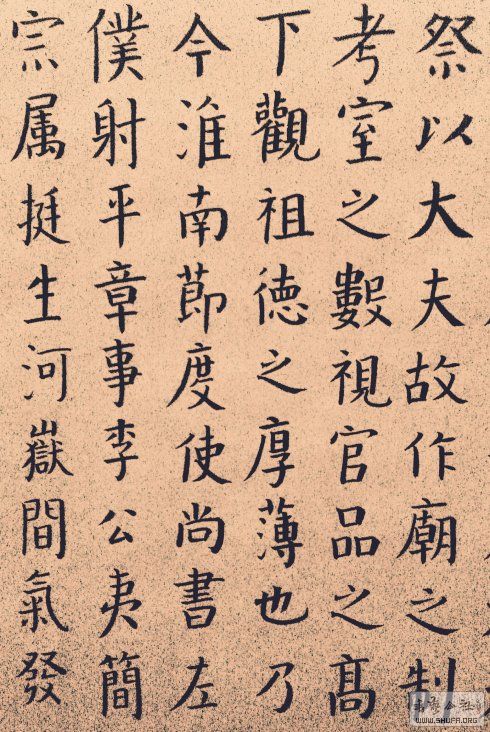 祭以大夫故作廟之制
考室之數視官品之髙
下觀祖德之厚薄也乃
今淮南節度使尚書左
僕射平章事李公夷簡
宗属挺生河嶽間氣發
WWW.SHUFA.ORG